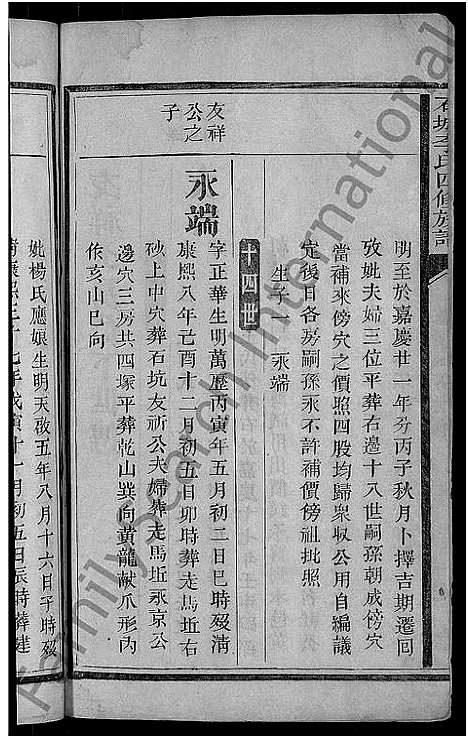 石城李氏四修族譜
明至於嘉慶廿一年分丙子秋月卜擇吉期遷回
攷妣夫婦三位平葬右邊十八世嗣孫朝成傍穴
當補來傍穴之價照四股均歸衆收公用自編議
定後日各房嗣孫永不許補價傍祖批照
生子一 永端
十四世
友祥
公之
子
永端
字正華生明萬歷丙寅年五月初二日巳時歿淸
康熙八年己酉十二月初五日卯時葬走馬坵右
砂上中穴葬石坑友祈公夫婦葬走馬坵永京公
邊穴三房共四塚平葬乾山巽向黃龍獻爪形內
依亥山巳向
妣楊氏應娘生明天啟五年八月十六日子時歿
年戊寅十一月初五日辰時葬建
FamilySearch International